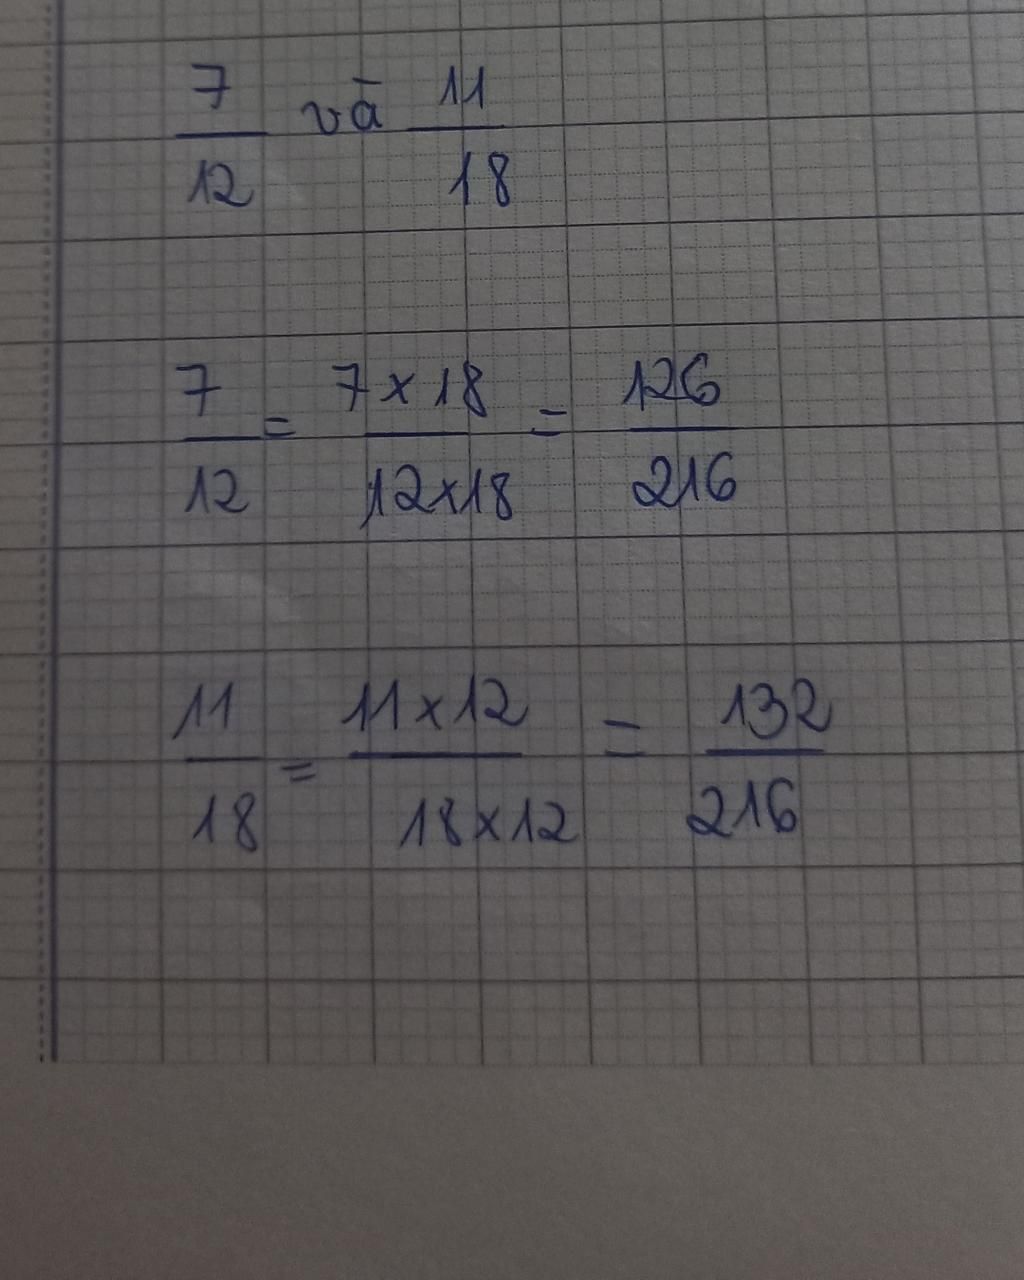 7/12 và 11/18
7/12 = 7 x 18/12 x 18 = 126/216
11/18 = 11 x 12/18 x 12 = 132/216